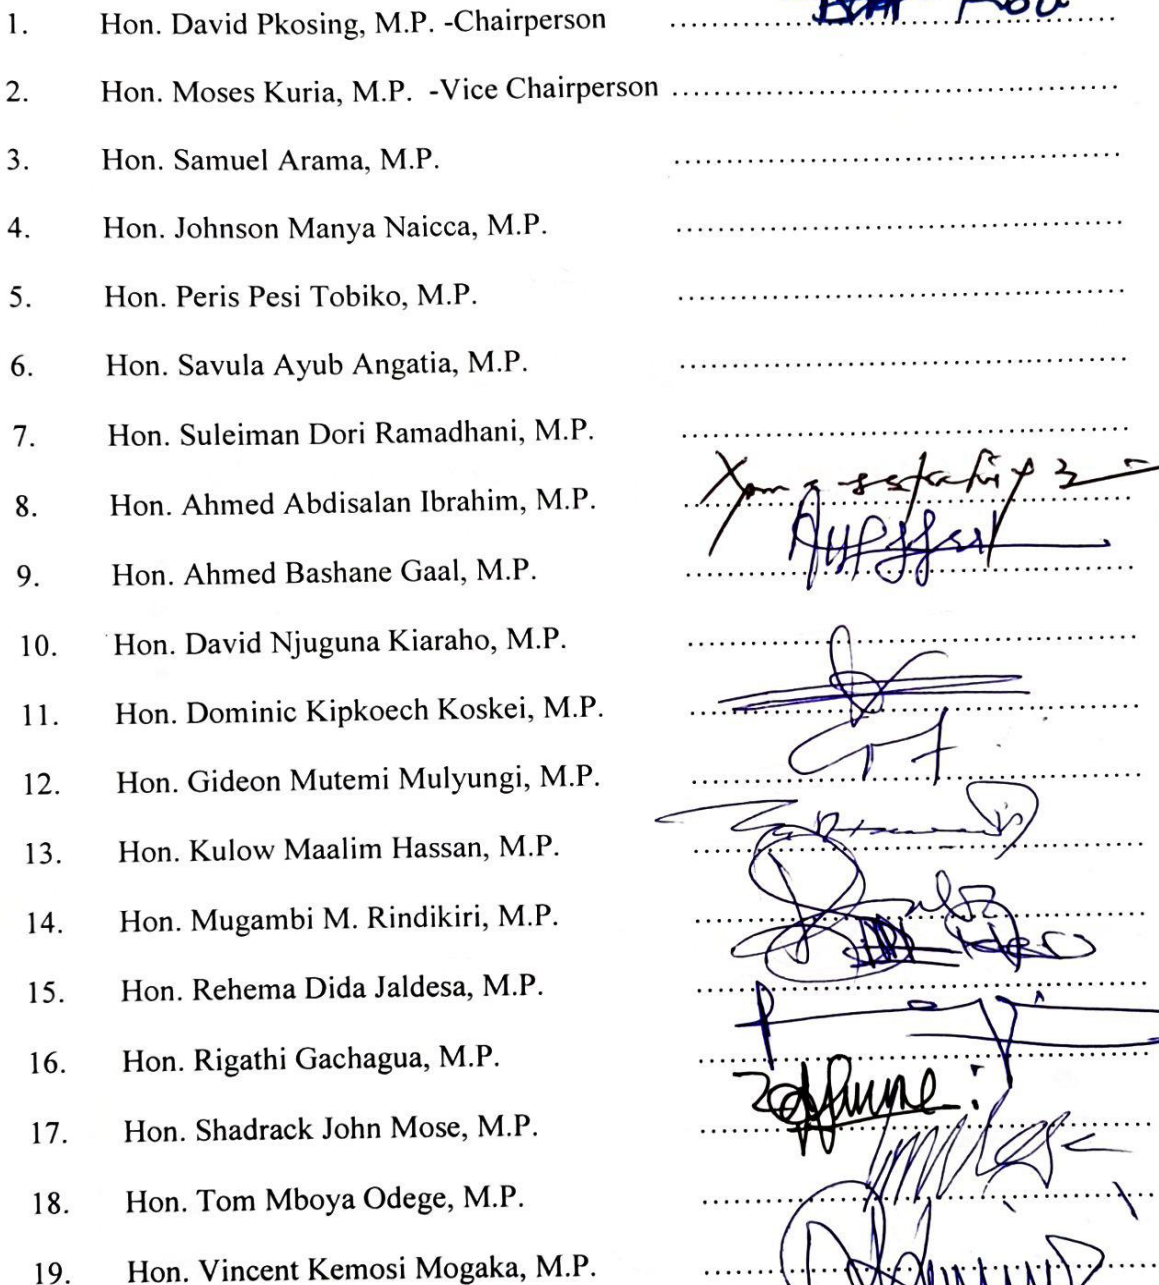 1. Hon. David Pkosing, M.P. -Chairperson ..........
2. Hon. Moses Kuria, M.P. -Vice Chairperson ..........
3. Hon. Samuel Arama, M.P. ..........
4. Hon. Johnson Manya Naicca, M.P. ..........
5. Hon. Peris Pesi Tobiko, M.P. ..........
6. Hon. Savula Ayub Angatia, M.P. ..........
7. Hon. Suleiman Dori Ramadhani, M.P. ..........
8. Hon. Ahmed Abdisalan Ibrahim, M.P. ..........
9. Hon. Ahmed Bashane Gaal, M.P. ..........
10. Hon. David Njuguna Kiaraho, M.P. ..........
11. Hon. Dominic Kipkoech Koskei, M.P. ..........
12. Hon. Gideon Mutemi Mulyungi, M.P. ..........
13. Hon. Kulow Maalim Hassan, M.P. ..........
14. Hon. Mugambi M. Rindikiri, M.P. ..........
15. Hon. Rehema Dida Jaldesa, M.P. ..........
16. Hon. Rigathi Gachagua, M.P. ..........
17. Hon. Shadrack John Mose, M.P. ..........
18. Hon. Tom Mboya Odege, M.P. ..........
19. Hon. Vincent Kemosi Mogaka, M.P. ..........